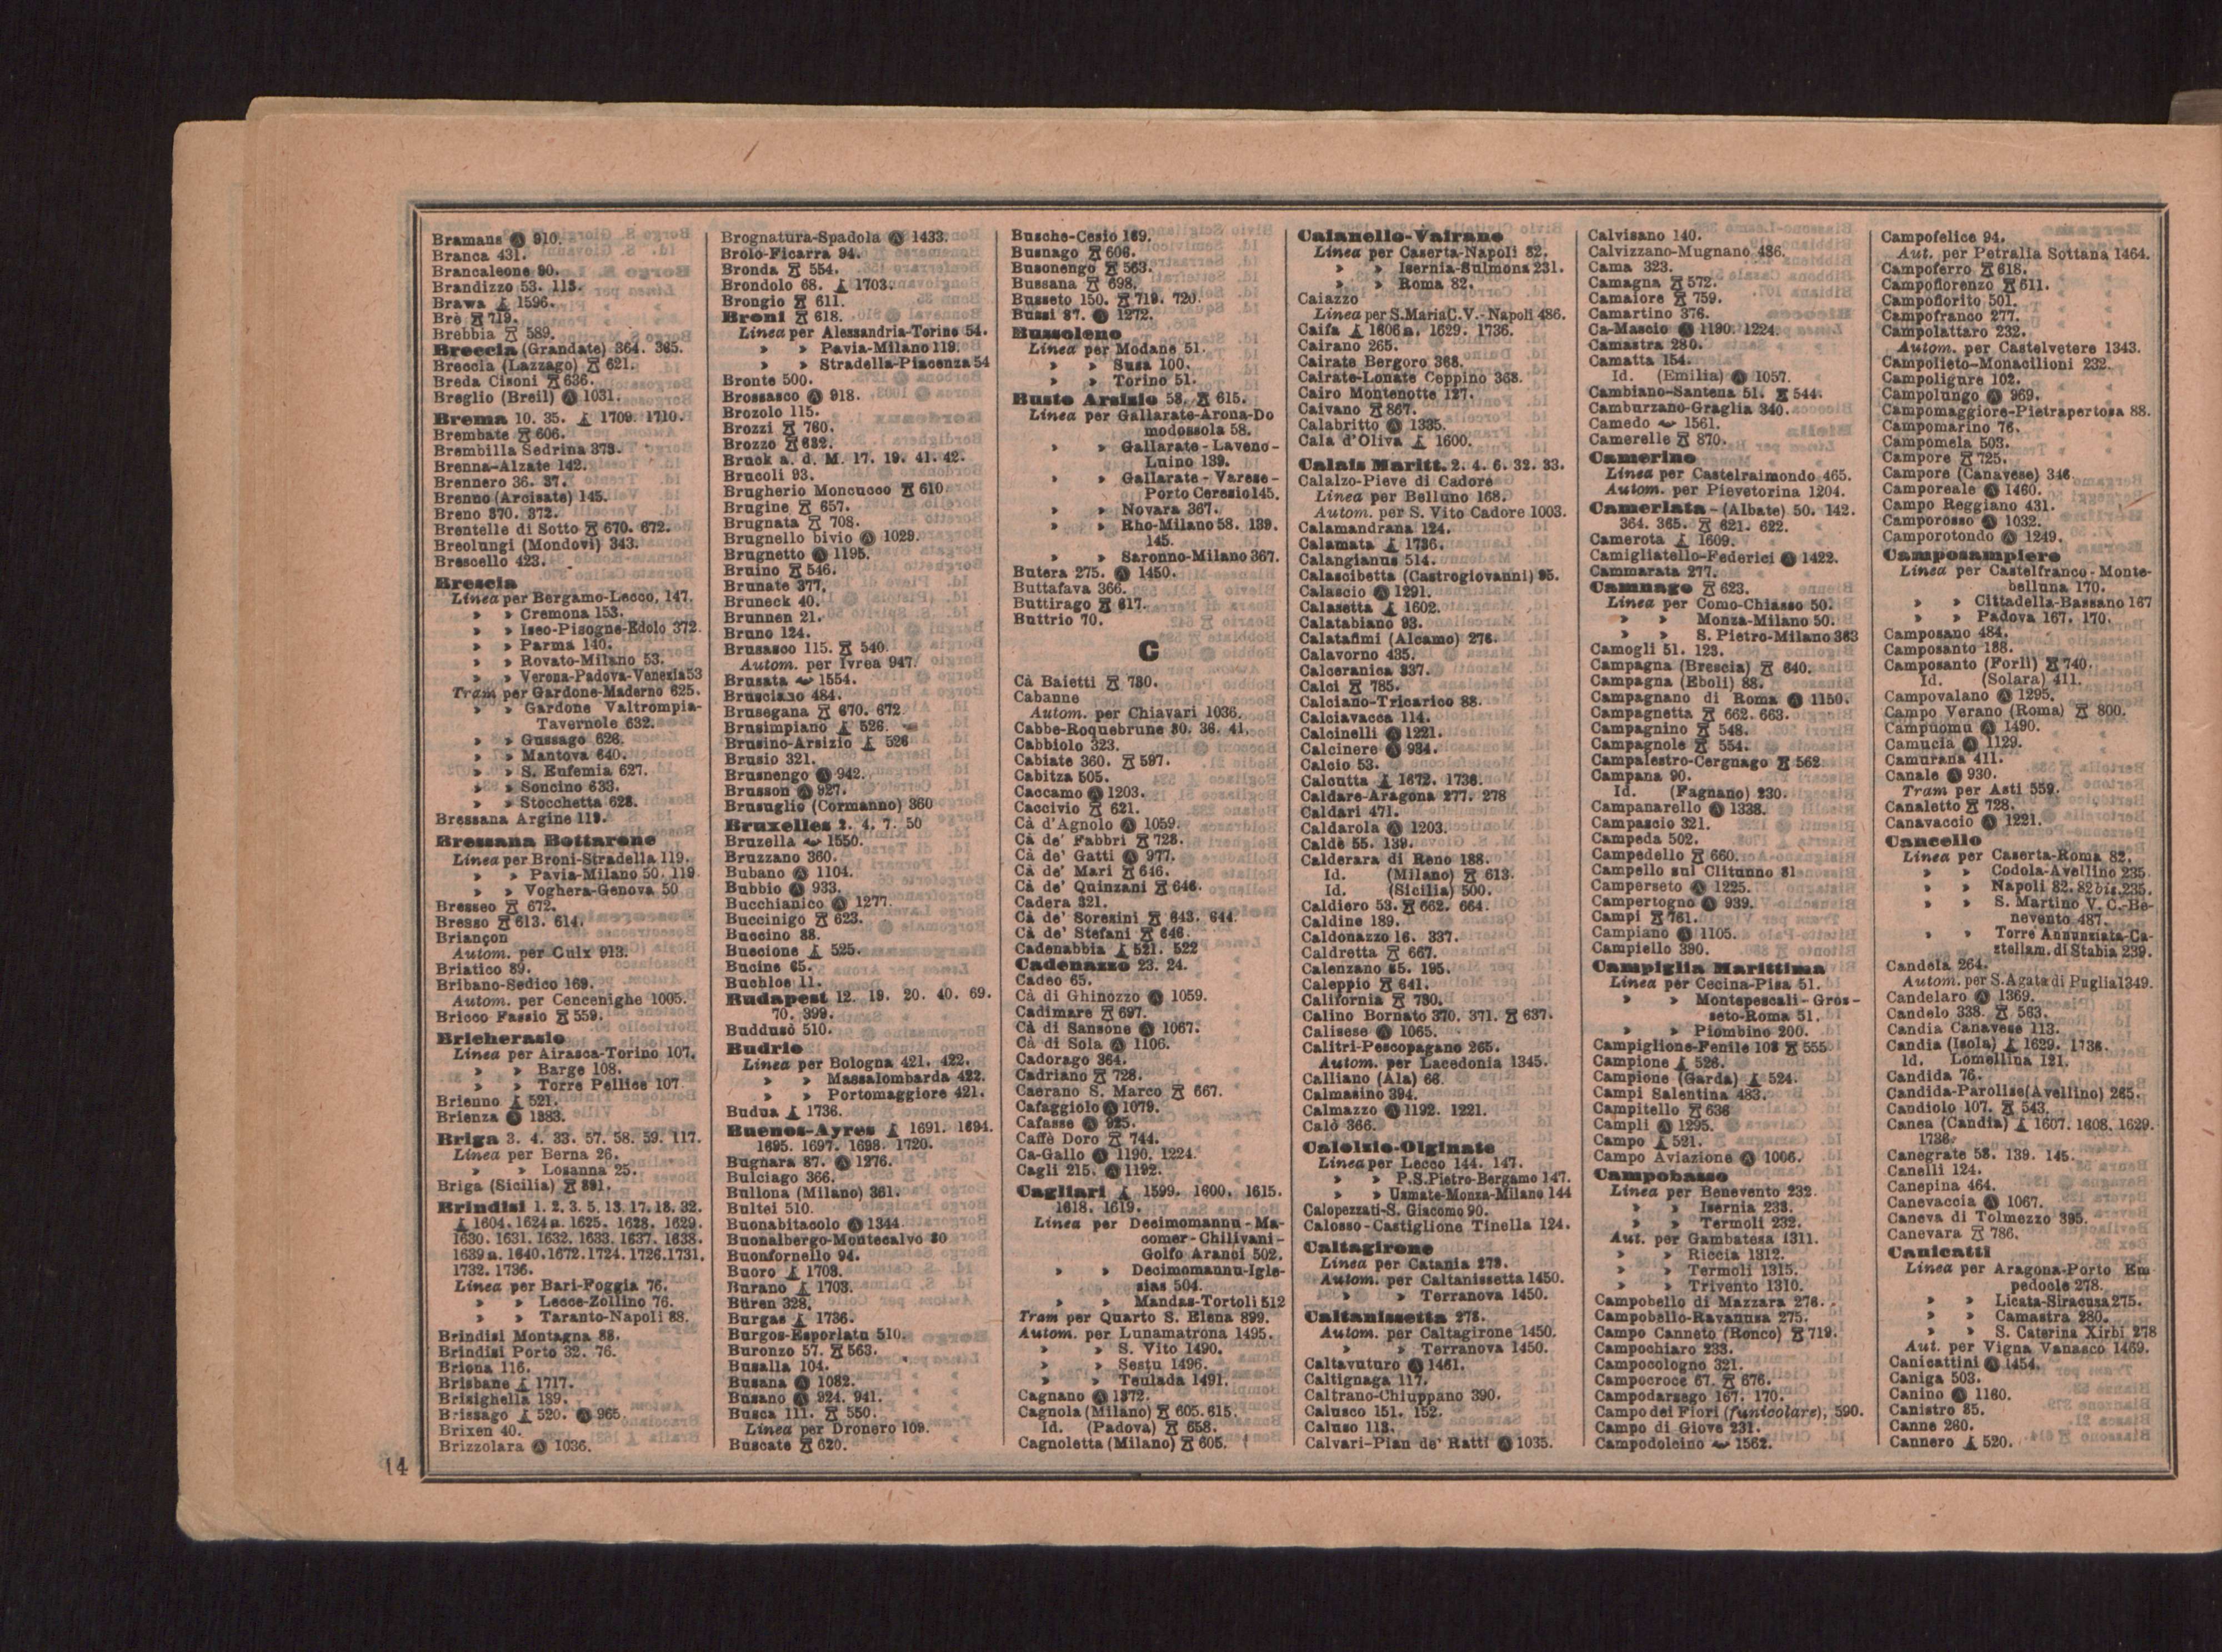 Bramans 910.
Branca 431.
Brancaleone 90.
Brandizzo 53. 113.
Brawa 1596.
Brè 719.
Brebbia 589.
Breccia (Grandate) 364. 365.
Breccia (Lazzago) 621.
Breda Cisoni 636.
Breglio (Breil) 1031.
Brema 10. 35. 1709. 1710.
Brembate 606.
Brembilla Sedrina 373.
Brenna-Alzate 142.
Brennero 36. 37.
Brenno (Arcisate) 145.
Breno 370. 372.
Brentelle di Sotto 670. 672.
Breolungi (Mondovì) 343.
Brescello 423.
Brescia
Linea per Bergamo-Lecco, 147.
» » Cremona 153.
» » Iseo-Pisogne-Edolo 372.
» » Parma 140.
» » Rovato-Milano 53.
» » Verona-Padova-Venezia 53
Tram per Gardone-Maderno 625.
» » Gardone Valtrompia-
Tavernole 632.
» » Gussago 626.
» » Mantova 640.
» » S. Eufemia 627.
» » Soncino 633.
» » Stocchetta 628.
Bressana Argine 119.
Bressana Bottarone
Linea per Broni-Stradella 119.
» » Pavia-Milano 50. 119
» » Voghera-Genova 50
Bresseo 672.
Bresso 613. 614.
Briançon
Autom. per Oulx 913.
Briatico 89.
Bribano-Sedico 169.
Autom. per Cencenighe 1005.
Bricco Fassio 559.
Bricherasio
Linea per Airasca-Torino 107.
» » Barge 108.
» » Torre Pellice 107
Brienno 521.
Brienza 1383.
Briga 3. 4. 33. 57. 58. 59. 117.
Linea per Berna 26.
» » Losanna 25.
Briga (Sicilia) 891.
Brindisi 1. 2. 3. 5. 13. 17. 18. 32.
1604. 1624a. 1625. 1628. 1629.
1630. 1631. 1632. 1633. 1637. 1638.
1639a. 1640. 1672. 1724. 1726. 1731.
1732. 1736.
Linea per Bari-Foggia 76.
» » Lecce-Zollino 76.
» » Taranto-Napoli 88.
Brindisi Montagna 88.
Brindisi Porto 32. 76.
Briona 116.
Brisbane 1717.
Brisighella 189.
Brissago 520. 965
Brixen 40.
Brizzolara 1036.
Brognatura-Spadola 1433.
Brolo-Ficarra 94.
Bronda 554.
Brondolo 68. 1703.
Brongio 611.
Broni 618.
Linea per Alessandria-Torino 54.
» » Pavia-Milano 119.
» » Stradella-Piacenza 54
Bronte 500.
Brossasco 918.
Brozolo 115.
Brozzi 760.
Brozzo 632.
Bruck a. d. M. 17. 19. 41. 42.
Brucoli 93.
Brugherio Moncucco 610
Brugine 657.
Brugnata 708.
Brugnello bivio 1029.
Brugnetto 1195.
Bruino 546.
Brunate 377.
Bruneck 40.
Brunnen 21.
Bruno 124.
Brusasco 115. 540.
Autom. per Ivrea 947.
Brusata 1554.
Brusciano 484.
Brusegana 670. 672
Brusimpiano 526.
Brusino-Arsizio 526
Brusio 321.
Brusnengo 942.
Brusson 927.
Brusuglio (Cormanno) 360
Bruxelles 2. 4. 7. 50
Bruzella 1550.
Bruzzano 360.
Bubano 1104.
Bubbio 933.
Bucchianico 1277.
Buccinigo 623.
Buccino 88.
Buccione 525.
Bucine 65.
Buchloe 11.
Budapest 12. 19. 20. 40. 69.
70. 399.
Buddusò 510.
Budrio
Linea per Bologna 421. 422.
» » Massalombarda 422.
» » Portomaggiore 421.
Budua 1736.
Buenos-Ayres 1691. 1694.
1695. 1697. 1698. 1720.
Bugnara 87. 1276.
Bulciago 366.
Bullona (Milano) 361.
Bultei 510.
Buonabitacolo 1344.
Buonalbergo-Montecalvo 80
Buonfornello 94.
Buoro 1703.
Burano 1703.
Büren 328.
Burgas 1736.
Burgos-Esporlatu 510.
Buronzo 57. 563.
Busalla 104.
Busana 1082.
Busano 924. 941.
Busca 111. 550.
Linea per Dronero 109.
Buscate 620.
Busche-Cesio 169.
Busnago 606.
Busonengo 563.
Bussana 698.
Busseto 150. 719. 720.
Bussi 87. 1272.
Bussoleno
Linea per Modane 51.
» » Susa 100.
» » Torino 51.
Busto Arsizio 58. 615.
Linea per Gallarate-Arona-Do
modossola 58.
» » Gallarate-Laveno-
Luino 139.
» » Gallarate-Varese-
Porto Ceresio 145.
» » Novara 367.
» » Rho-Milano 58. 139.
145.
» » Saronno-Milano 367.
Butera 275. 1450.
Buttafava 366.
Buttirago 617.
Buttrio 70.
C
Cà Baietti 730.
Cabanne
Autom. per Chiavari 1036.
Cabbe-Roquebrune 30. 36. 41.
Cabbiolo 323.
Cabiate 360. 597.
Cabitza 505.
Caccamo 1203.
Caccivio 621.
Cà d'Agnolo 1059.
Cà de' Fabbri 728.
Cà de' Gatti 977.
Cà de' Mari 646.
Cà de' Quinzani 646.
Cadera 321.
Cà de' Soresini 643. 644.
Cà de' Stefani 646.
Cadenabbia 521. 522
Cadenazzo 23. 24.
Cadeo 65.
Cà di Ghinozzo 1059.
Cadimare 697.
Cà di Sansone 1067.
Cà di Sola 1106.
Cadorago 364.
Cadriano 728.
Caerano S. Marco 667.
Cafaggiolo 1079.
Cafasse 925.
Caffè Doro 744.
Ca-Gallo 1190. 1224.
Cagli 215. 1192.
Cagliari 1599. 1600. 1615.
1618. 1619.
Linea per Decimomannu-Ma-
comer-Chilivani-
Golfo Aranci 502.
» » Decimomannu-Igle-
sias 504.
» » Mandas-Tortolì 512
Tram per Quarto S. Elena 899.
Autom. per Lunamatrona 1495.
» » S. Vito 1490.
» » Sestu 1496.
» » Teulada 1491.
Cagnano 1372.
Cagnola (Milano) 605. 615.
Id. (Padova) 658.
Cagnoletta (Milano) 605.
Caianello-Vairano
Linea per Caserta-Napoli 82.
» » Isernia-Sulmona 231.
» » Roma 82.
Caiazzo
Linea per S. Maria C. V.-Napoli 486.
Caifa 1606a. 1629. 1736.
Cairano 265.
Cairate Bergoro 368.
Cairate-Lonate Ceppino 368.
Cairo Montenotte 127.
Caivano 867.
Calabritto 1335.
Cala d'Oliva 1600.
Calais Maritt. 2. 4. 6. 32. 33.
Calalzo-Pieve di Cadore
Linea per Belluno 168.
Autom. per S. Vito Cadore 1003.
Calamandrana 124.
Calamata 1736.
Calangianus 514.
Calascibetta (Castrogiovanni) 95.
Calascio 1291.
Calasetta 1602.
Calatabiano 93.
Calatafimi (Alcamo) 276.
Calavorno 435.
Calceranica 337.
Calci 785.
Calciano-Tricarico 88.
Calciavacca 114.
Calcinelli 1221.
Calcinere 934.
Calcio 53.
Calcutta 1672. 1736.
Caldare-Aragona 277. 278
Caldari 471.
Caldarola 1203.
Caldè 55. 139.
Calderara di Reno 188.
Id. (Milano) 613.
Id. (Sicilia) 500.
Caldiero 53. 662. 664.
Caldine 189.
Caldonazzo 16. 337.
Caldretta 667.
Calenzano 85. 195.
Caleppio 641.
California 730.
Calino Bornato 370. 371. 637.
Calisese 1065.
Calitri-Pescopagano 265.
Autom. per Lacedonia 1345.
Calliano (Ala) 66.
Calmasino 394.
Calmazzo 1192. 1221.
Calò 366.
Calolzio-Olginate
Linea per Lecco 144. 147.
» » P.S.Pietro-Bergamo 147.
» » Usmate-Monza-Milano 144
Calopezzati-S. Giacomo 90.
Calosso-Castiglione Tinella 124.
Caltagirone
Linea per Catania 273.
Autom. per Caltanissetta 1450.
» » Terranova 1450.
Caltanissetta 278.
Autom. per Caltagirone 1450.
» » Terranova 1450.
Caltavuturo 1461.
Caltignaga 117.
Caltrano-Chiuppano 390.
Calusco 151. 152.
Caluso 113.
Calvari-Pian de' Ratti 1035.
Calvisano 140.
Calvizzano-Mugnano 486.
Cama 323.
Camagna 572.
Camaiore 759.
Camartino 376.
Ca-Mascio 1190. 1224.
Camastra 280.
Camatta 154.
Id. (Emilia) 1057.
Cambiano-Santena 51. 544.
Camburzano-Graglia 340.
Camedo 1561.
Camerelle 870.
Camerino
Linea per Castelraimondo 465.
Autom. per Pievetorina 1204.
Camerlata-(Albate) 50. 142.
364. 365. 621. 622.
Camerota 1609.
Camigliatello-Federici 1422.
Cammarata 277.
Camnago 623.
Linea per Como-Chiasso 50.
» » Monza-Milano 50.
» » S. Pietro-Milano 363
Camogli 51. 123.
Campagna (Brescia) 640.
Campagna (Eboli) 88.
Campagnano di Roma 1150.
Campagnetta 662. 663.
Campagnino 548.
Campagnole 554.
Campalestro-Cergnago 562
Campana 90.
Id. (Fagnano) 230.
Campanarello 1338.
Campascio 321.
Campeda 502.
Campedello 660.
Campello sul Clitunno 81
Camperseto 1225.
Campertogno 939.
Campi 761.
Campiano 1105.
Campiello 390.
Campiglia Marittima
Linea per Cecina-Pisa 51.
» » Montepescali-Gros-
seto-Roma 51.
» » Piombino 200.
Campiglione-Fenile 108 555
Campione 526.
Campione (Garda) 524.
Campi Salentina 483.
Campitello 636
Campli 1295.
Campo 521.
Campo Aviazione 1006.
Campobasso
Linea per Benevento 232.
» » Isernia 233.
» » Termoli 232.
Aut. per Gambatesa 1311.
» » Riccia 1312.
» » Termoli 1315.
» » Trivento 1310.
Campobello di Mazzara 276.
Campobello-Ravanusa 275.
Campo Canneto (Ronco) 719.
Campochiaro 233.
Campocologno 321.
Campocroce 67. 676.
Campodarsego 167. 170.
Campo dei Fiori (funicolare), 590.
Campo di Giove 231.
Campodolcino 1562.
Campofelice 94.
Aut. per Petralia Sottana 1464.
Campoferro 618.
Campoflorenzo 611.
Campofiorito 501.
Campofranco 277.
Campolattaro 232.
Autom. per Castelvetere 1343.
Campolieto-Monacilioni 232.
Campoligure 102.
Campolungo 969.
Campomaggiore-Pietrapertosa 88.
Campomarino 76.
Campomela 503.
Campore 725.
Campore (Canavese) 346.
Camporeale 1460.
Campo Reggiano 431.
Camporosso 1032.
Camporotondo 1249.
Camposampiero
Linea per Castelfranco-Monte-
belluna 170.
» » Cittadella-Bassano 167
» » Padova 167. 170.
Camposano 484.
Camposanto 188.
Camposanto (Forlì) 740.
Id. (Solara) 411.
Campovalano 1295.
Campo Verano (Roma) 800.
Campuomu 1490.
Camucia 1129.
Camurana 411.
Canale 930.
Tram per Asti 559.
Canaletto 728.
Canavaccio 1221.
Cancello
Linea per Caserta-Roma 82.
» » Codola-Avellino 235
» » Napoli 82. 82 bis. 235.
» » S. Martino V. C.-Be-
nevento 487.
» » Torre Annunziata-Ca-
stellam. di Stabia 239.
Candela 264.
Autom. per S. Agata di Puglia 1349.
Candelaro 1369.
Candelo 338. 563.
Candia Canavese 113.
Candia (Isola) 1629. 1736.
Id. Lomellina 121.
Candida 76.
Candida-Parolise (Avellino) 265.
Candiolo 107. 543.
Canea (Candia) 1607. 1608. 1629.
1736.
Canegrate 58. 139. 145.
Canelli 124.
Canepina 464.
Canevaccia 1067.
Caneva di Tolmezzo 395.
Canevara 786.
Canicattì
Linea per Aragona-Porto Em
pedocle 278.
» » Licata-Siracusa 275.
» » Camastra 280.
» » S. Caterina Xirbi 278
Aut. per Vigna Vanasco 1469.
Canicattini 1454.
Caniga 503.
Canino 1160.
Canistro 85.
Canne 260.
Cannero 520.
14